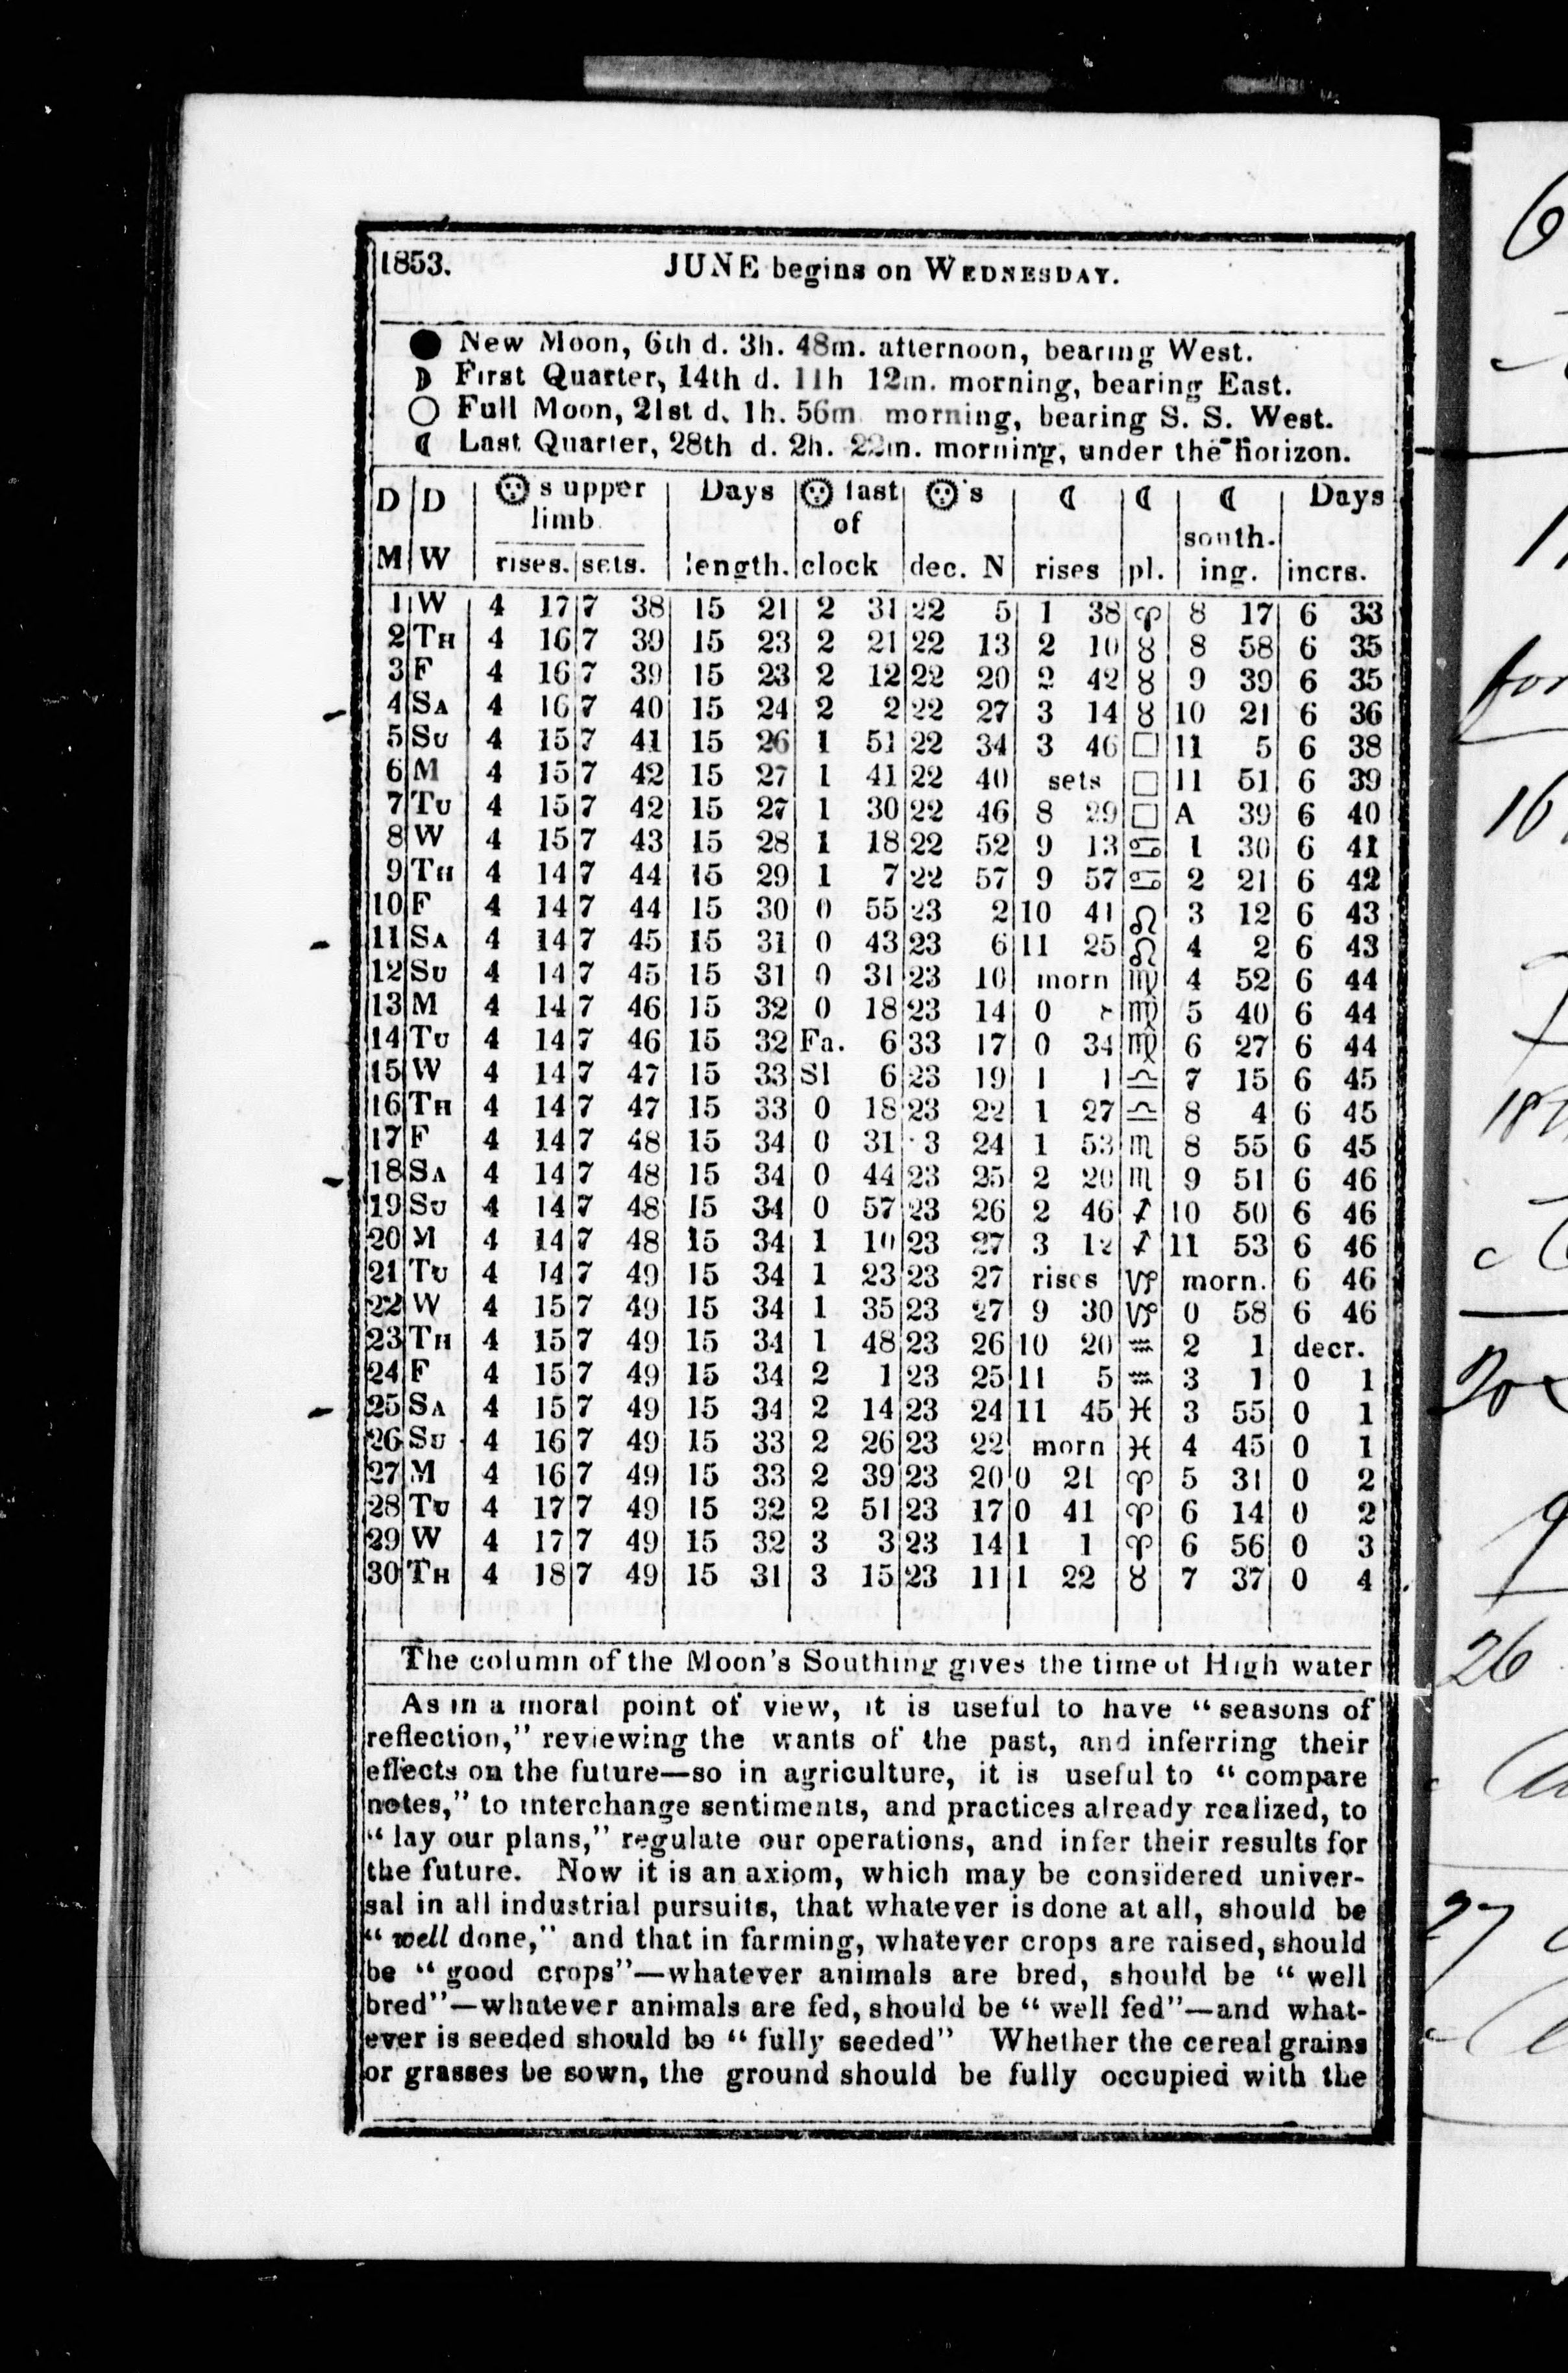 1853. JUNE begins on WEDNESDAY.
● New Moon, 6th d. 3h. 48m. afternoon, bearing West.
☽ First Quarter, 14th d. 11h 12m. morning, bearing East.
○ Full Moon, 21st d. 1h. 56m morning, bearing S. S. West.
☾ Last Quarter, 28th d. 2h. 22m. morning, under the horizon.
D D ☉ s upper Days ☉ fast ☉'s ☾ ☾ ☾ Days
limb of south-
M W rises. sets. length. clock dec. N rises pl. ing. incrs.
1 W 4 17 7 38 15 21 2 31 22 5 1 38 ♈ 8 17 6 33
2 TH 4 16 7 39 15 23 2 21 22 13 2 10 ♉ 8 58 6 35
3 F 4 16 7 39 15 23 2 12 22 20 2 42 ♉ 9 39 6 35
4 SA 4 16 7 40 15 24 2 2 22 27 3 14 ♉ 10 21 6 36
5 SU 4 15 7 41 15 26 1 51 22 34 3 46 □ 11 5 6 38
6 M 4 15 7 42 15 27 1 41 22 40 sets □ 11 51 6 39
7 TU 4 15 7 42 15 27 1 30 22 46 8 29 □ A 39 6 40
8 W 4 15 7 43 15 28 1 18 22 52 9 13 ♋ 1 30 6 41
9 TH 4 14 7 44 15 29 1 7 22 57 9 57 ♋ 2 21 6 42
10 F 4 14 7 44 15 30 0 55 23 2 10 41 ♌ 3 12 6 43
11 SA 4 14 7 45 15 31 0 43 23 6 11 25 ♌ 4 2 6 43
12 SU 4 14 7 45 15 31 0 31 23 10 morn ♍ 4 52 6 44
13 M 4 14 7 46 15 32 0 18 23 14 0 ♍ 5 40 6 44
14 TU 4 14 7 46 15 32 Fa. 6 33 17 0 34 ♍ 6 27 6 44
15 W 4 14 7 47 15 33 Sl 6 23 19 1 1 ♎ 7 15 6 45
16 TH 4 14 7 47 15 33 0 18 23 22 1 27 ♎ 8 4 6 45
17 F 4 14 7 48 15 34 0 31 3 24 1 53 ♏ 8 55 6 45
18 SA 4 14 7 48 15 34 0 44 23 25 2 20 ♏ 9 51 6 46
19 SU 4 14 7 48 15 34 0 57 23 26 2 46 ♐ 10 50 6 46
20 M 4 14 7 48 15 34 1 10 23 27 3 12 ♐ 11 53 6 46
21 TU 4 14 7 49 15 34 1 23 23 27 rises ♑ morn. 6 46
22 W 4 15 7 49 15 34 1 35 23 27 9 30 ♑ 0 58 6 46
23 TH 4 15 7 49 15 34 1 48 23 26 10 20 ♒ 2 1 decr.
24 F 4 15 7 49 15 34 2 1 23 25 11 5 ♒ 3 1 0 1
25 SA 4 15 7 49 15 34 2 14 23 24 11 45 ♓ 3 55 0 1
26 SU 4 16 7 49 15 33 2 26 23 22 morn ♓ 4 45 0 1
27 M 4 16 7 49 15 33 2 39 23 20 0 21 ♈ 5 31 0 2
28 TU 4 17 7 49 15 32 2 51 23 17 0 41 ♈ 6 14 0 2
29 W 4 17 7 49 15 32 3 3 23 14 1 1 ♈ 6 56 0 3
30 TH 4 18 7 49 15 31 3 15 23 11 1 22 ♉ 7 37 0 4
The column of the Moon's Southing gives the time of High water
As in a moral point of view, it is useful to have “ seasons of
reflection,” reviewing the wants of the past, and inferring their
effects on the future—so in agriculture, it is useful to “ compare
notes,” to interchange sentiments, and practices already realized, to
“ lay our plans,” regulate our operations, and infer their results for
the future. Now it is an axiom, which may be considered univer-
sal in all industrial pursuits, that whatever is done at all, should be
“ well done,” and that in farming, whatever crops are raised, should
be “ good crops”—whatever animals are bred, should be “ well
bred”—whatever animals are fed, should be “ well fed”—and what-
ever is seeded should be “ fully seeded” Whether the cereal grains
or grasses be sown, the ground should be fully occupied with the
6
for
16
18
20
26
27